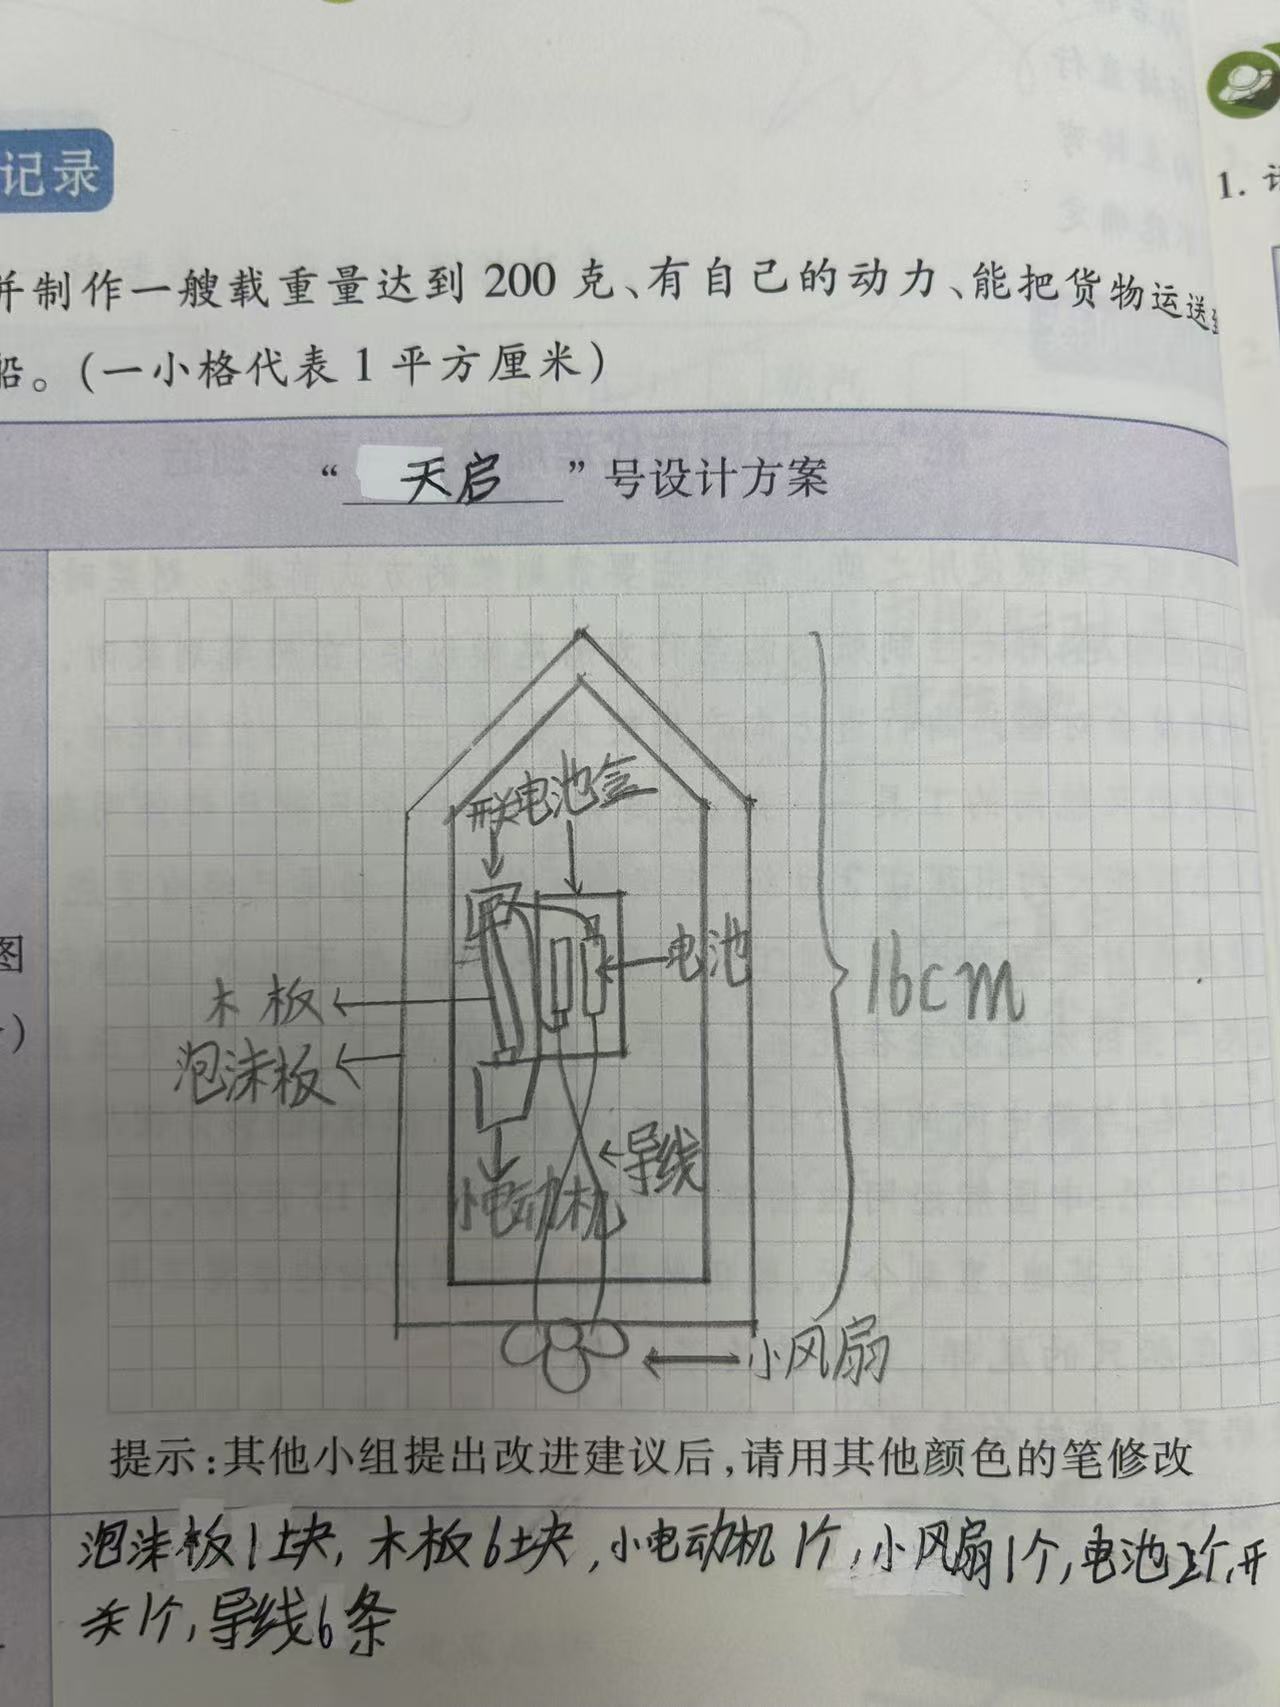 记录
1.
并制作一艘载重量达到 200 克、有自己的动力、能把货物运送到
船。(一小格代表 1 平方厘米)
“天启”号设计方案
开关 电池盒
电池
木板
16cm
图
泡沫板
导线
小电动机
小风扇
提示:其他小组提出改进建议后,请用其他颜色的笔修改
泡沫板1块,木板6块,小电动机1个,小风扇1个,电池2个,开
关1个,导线6条